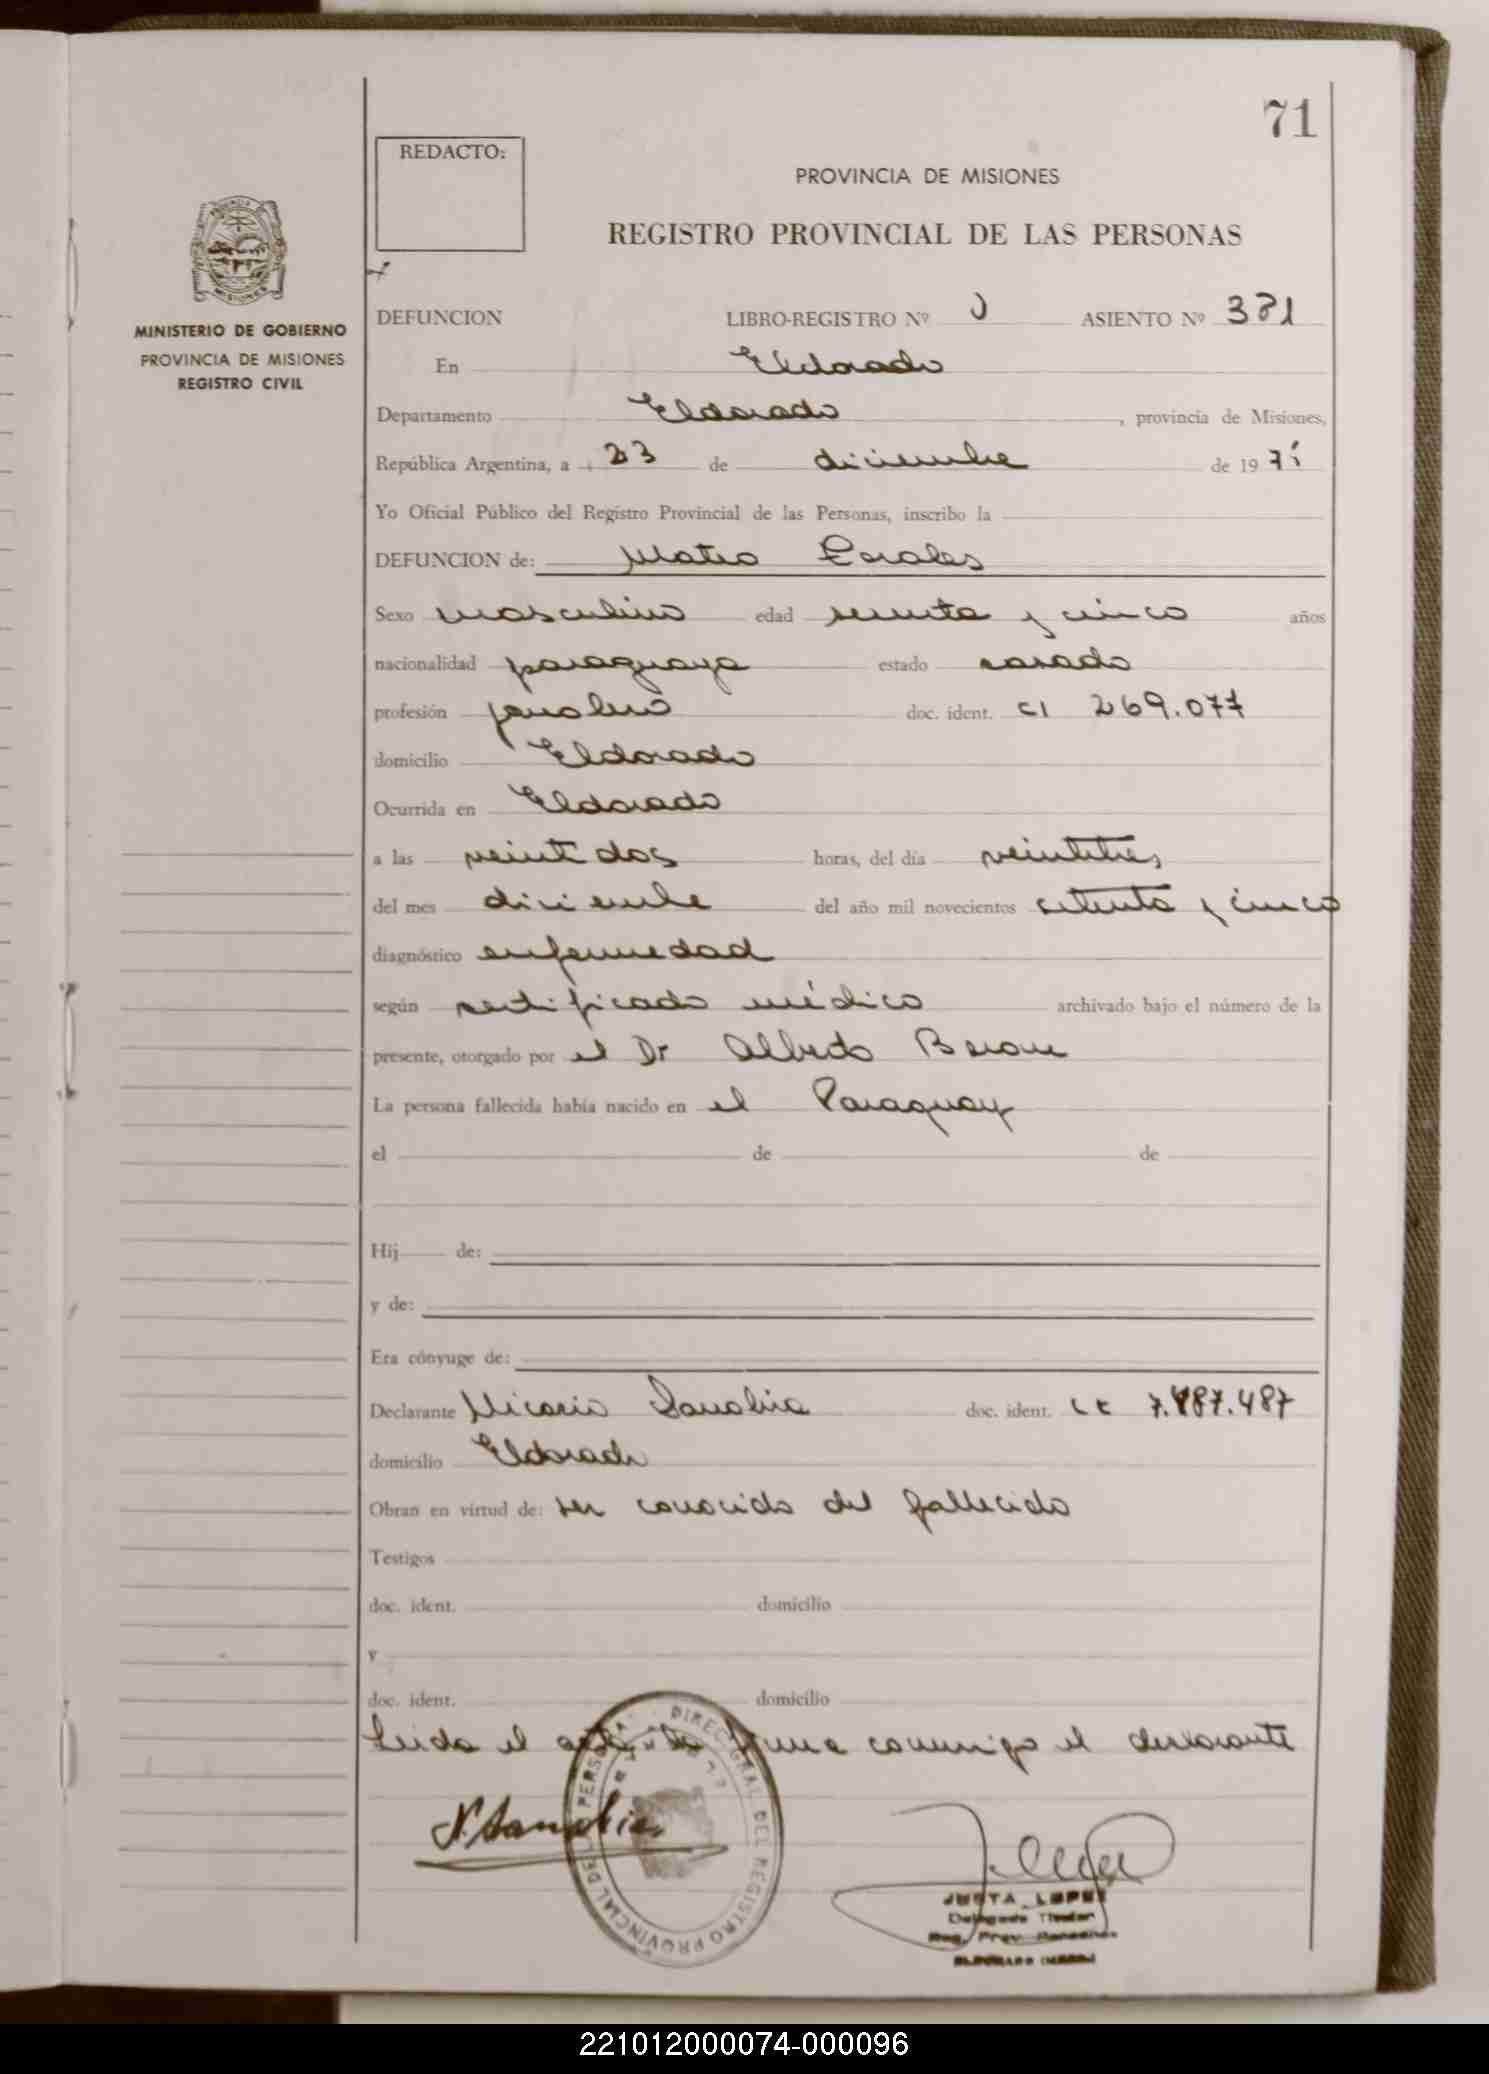 71
REDACTO:
PROVINCIA DE MISIONES
REGISTRO PROVINCIAL DE LAS PERSONAS
MISIONES
MINISTERIO DE GOBIERNO
PROVINCIA DE MISIONES
REGISTRO CIVIL
DEFUNCION LIBRO-REGISTRO Nº ASIENTO Nº 381
En Eldorado
Departamento Eldorado, provincia de Misiones,
República Argentina, a 23 de diciembre de 197
Yo Oficial Público del Registro Provincial de las Personas, inscribo la
DEFUNCION de: Mateo
Sexo masculino edad y cinco años
nacionalidad paraguaya estado casado
profesión jornalero doc. ident. CI 269.077
domicilio Eldorado
Ocurrida en Eldorado
a las veintidos horas, del día veintitres
del mes diciembre del año mil novecientos setenta y cinco
diagnóstico enfermedad
según certificado médico archivado bajo el número de la
presente, otorgado por el Dr Alfredo
La persona fallecida había nacido en el Paraguay
el de de
Hij de:
y de:
Era cónyuge de:
Declarante Nicasio Sanabria doc. ident. 7.487.487
domicilio Eldorado
Obran en virtud de: ser conocido del fallecido
Testigos
doc. ident. domicilio
y
doc. ident. domicilio
Leida el acta la firma conmigo el declarante
N. Sanabria
DIREC. GRAL. DEL REGISTRO PROVINCIAL DE
JUSTA LOPEZ
Delegado Titular
Reg. Prov. Personas
ELDORADO
221012000074-000096